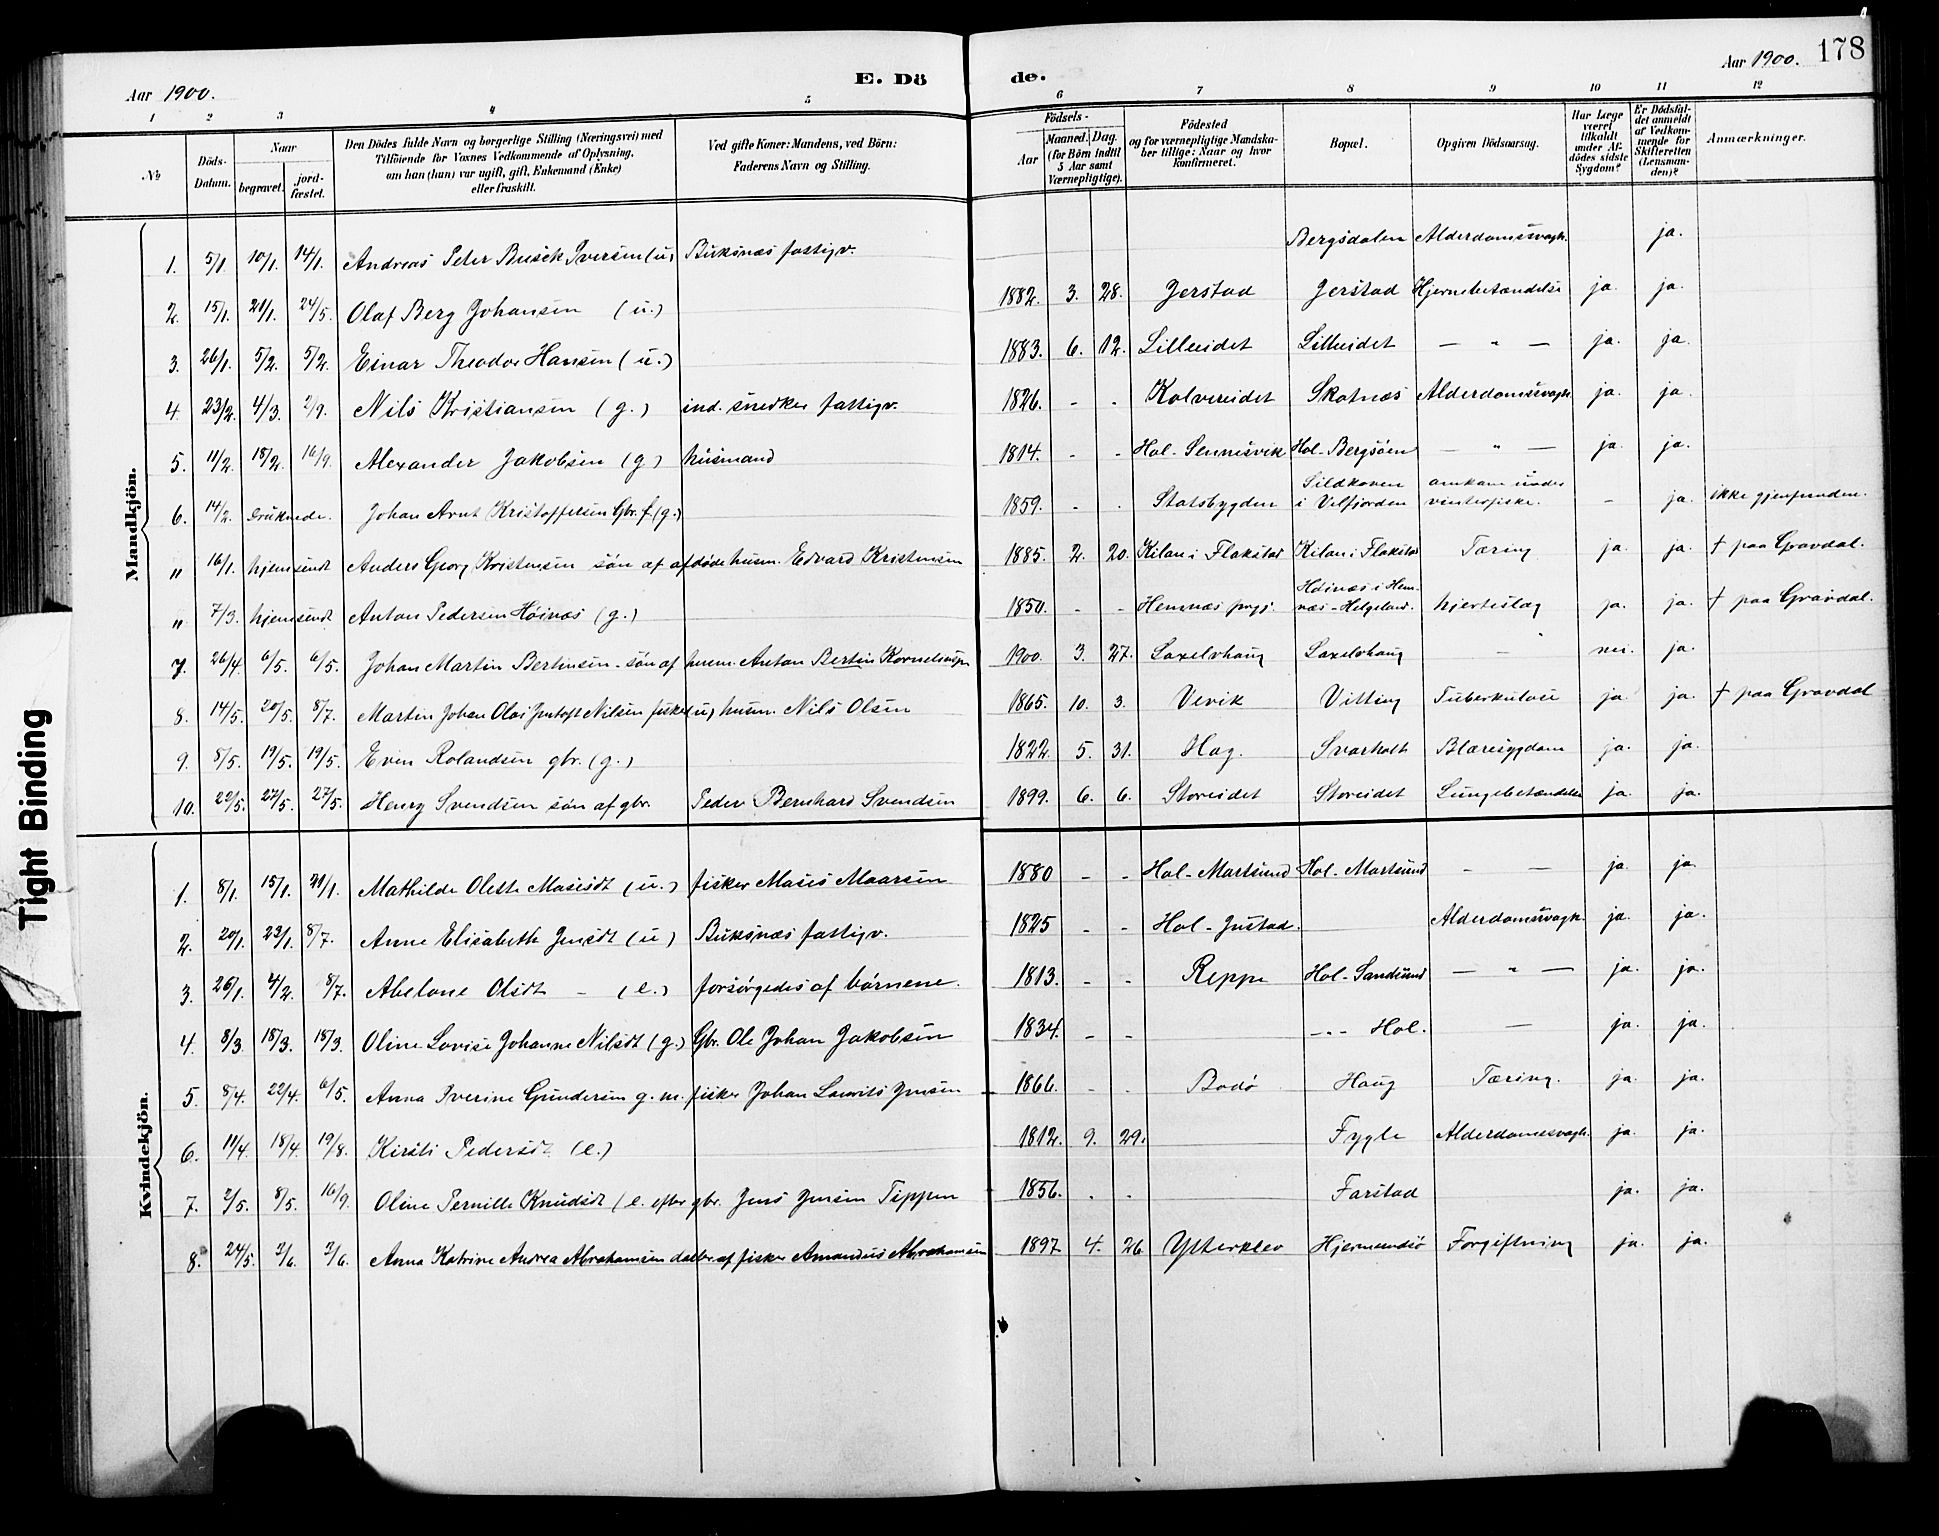 178
Aar 1900.
E. Dö de.
Aar 1900.
1 2 3 4 5 6 7 8 9 10 11 12
No
Döds-Datum.
Naar
begravet.
jord-fæstet.
Den Dödes fulde Navn og borgerlige Stilling (Næringsvei) med Tilföiende for Voxnes Vedkommende af Oplysning, om han (hun) var ugift, gift, Enkemand (Enke) eller fraskilt.
Ved gifte Koner: Mandens, ved Börn: Faderens Navn og Stilling.
Födsels-
Aar
Maaned. Dag.
(for Börn indtil 5 Aar samt Værnepligtige).
Födested og for værnepligtige Mandskaber tillige: Naar og hvor konfirmeret.
Bopæl.
Opgiven Dödsaarsag.
Har Læge været tilkaldt under Afdödes sidste Sygdom?
Er Dödsfaldet anmeldt af Vedkommende for Skifteretten (Lensmanden)?
Anmærkninger.
Mandkjön.
1. 5/1. 10/1. 14/1. Andreas Peter Busch Iversen (u) Buksnæs fattigv. Bergsdalen Alderdomssvagh. ja.
2. 15/1. 21/1. 24/5. Olaf Berg Johansen (u.) 1882. 3. 28. Jerstad Jerstad Hjernebetændelse ja. ja.
3. 26/1. 5/2. 5/2. Einar Theodor Hansen (u.) 1883. 6. 12. Lilleeidet Lilleeidet — " — ja. ja.
4. 23/2. 4/3. 2/9. Nils Kristiansen (g.) ind. snedker fattigv. 1826. - - Kolvereidet Skotnæs Alderdomssvagh. ja. ja.
5. 11/2. 18/2. 16/9. Alexander Jakobsen (g) husmand 1814. - - Hol-Sennesvik Hol-Bergsöen — " — ja. ja.
6. 14/2. Druknede. Johan Arnt Kristoffersen Gbr. f (g.) 1859. - . Statsbygden Sildhoven i Velfjorden omkom under vinterfiske. - ja. ikke gjenfunden.
" 16/1. hjemsendt Anders Georg Kristensen sön af afdöde husm. Edvard Kristensen 1885. 2. 20. Kilan i Flakstad Kilan i Flakstad Tæring ja. ja. † paa Gravdal.
" 7/3. hjemsendt Anton Pedersen Höinæs (g.) 1850. - - Hemnæs prgj. Höinæs i Hemnæs-Helgeland. hjerteslag ja. ja. † paa Gravdal.
7. 26/4. 6/5. 6/5. Johan Martin Bertinsen. sön af husm. Anton Bertin Kornelius 1900. 3. 27. Saxelvhaug Saxelvhaug — nei. ja.
8. 14/5. 20/5. 8/7. Martin Johan Olai Nilsen fisker (u) husm. Nils Olsen 1865. 10. 3. Vevik Vitting Tuberkulose ja. ja. † paa Gravdal
9. 8/5. 19/5. 19/5. Even Rolandsen gbr. (g.) 1822. 5. 31. Hag. Svarholt Blæresygdom ja. ja.
10. 22/5. 27/5. 27/5. Henry Svendsen sön af gbr. Peder Bernhard Svendsen 1899. 6. 6. Storeidet Storeidet Lungebetændelse ja. ja.
Kvindekjön.
1. 8/1. 15/1. 21/1. Mathilde Olette Masisdt (u.) fisker Masis Maarsen 1880 - - Hol-Mortsund Hol-Mortsund — — ja. ja
2. 20/1. 23/1. 8/7. Anne Elisabeth Jensdt (u) Buksnæs fattigv. 1825 - - Hol-Justad. Alderdomssvagh. ja. ja.
3. 26/1. 4/2. 8/7. Abelone Olsdt - (e.) forsörgedes af börnene. 1813. - - Reppe Hol-Sandsund — " — ja. ja.
4. 8/3. 18/3. 18/3. Oline Lovise Johanne Nilsdt (g.) Gbr. Ole Johan Jakobsen 1834. - - --- Hol. — ja. ja.
5. 8/4. 22/4. 6/5. Anna Iverine Gundersen g. m. fisker Johan Laurits Jensen 1866. - - Bodö Haug Tæring. ja. ja.
6. 11/4. 18/4. 19/8. Kirsti Pedersdt (e.) 1812. 9. 29. Fygle Alderdomssvagh. ja. ja.
7. 2/5. 8/5. 16/9. Oline Pernille Knudsdt (e. efter gbr. Jens Jensen Tippen 1856. - - Farstad ja. ja.
8. 24/5. 3/6. 3/6. Anna Katrine Andrea Abrahamsen datter af fisker Amandus Abrahamsen 1897 4. 26. Ytterklev Hjermendsö Forgiftning ja. ja.
Tight Binding